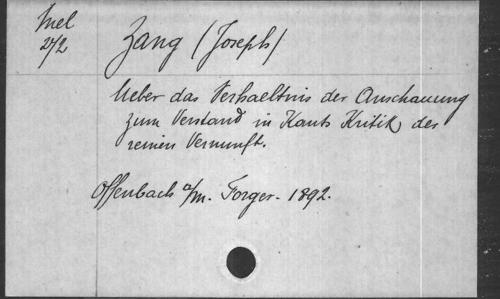 Mel
272
Zang (Joseph)
Ueber das Verhaeltnis der Anschauung
zum Verstand in Kants Kritik der
reinen Vernunft.
Offenbach a/m. Forger. 1892.